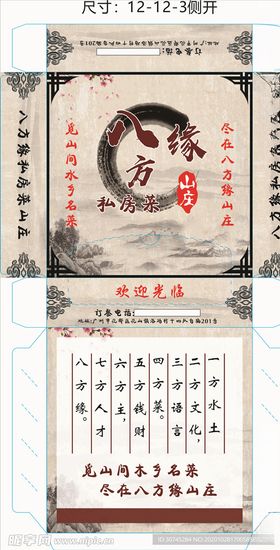 尺寸：12-12-3侧开
订餐电话：
八方缘私房菜山庄
觅山间水乡名菜
八方缘
私房菜
山庄
尽在八方缘山庄
八方缘私房菜山庄
欢迎光临
订餐电话：
一方水土
二方文化，
三方语言
四方菜。
五方钱财
六方主，
七方人才
八方缘。
觅山间水乡名菜
尽在八方缘山庄
昵享网 www.nipic.cn